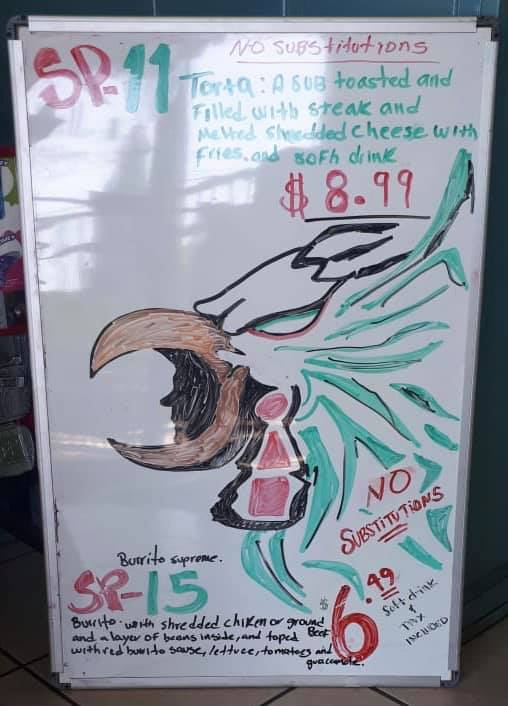 NO SUBStitutions
SP-11
Torta: A SUB toasted and
Filled with steak and
Melted Shredded Cheese with
Fries, and soft drink
$ 8.99
NO
SUBSTITUTIONS
Burrito supreme.
SP-15
$ 6.49
Soft drink
&
TAX
INCLUDED
Burrito with shredded chiken or ground Beef
and a layer of beans inside, and toped
with red burrito sause, lettuce, tomatoes and
guacamole.